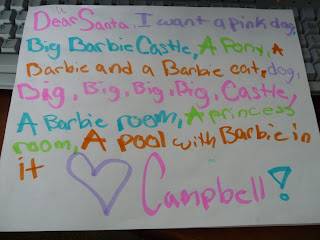 Dear Santa, I want a pink dog,
Big Barbie Castle, A Pony, A
Barbie and a Barbie cat, dog,
Big, Big, Big, Big, Castle,
A Barbie room, A princess
room, A pool with Barbie in
it
Campbell!